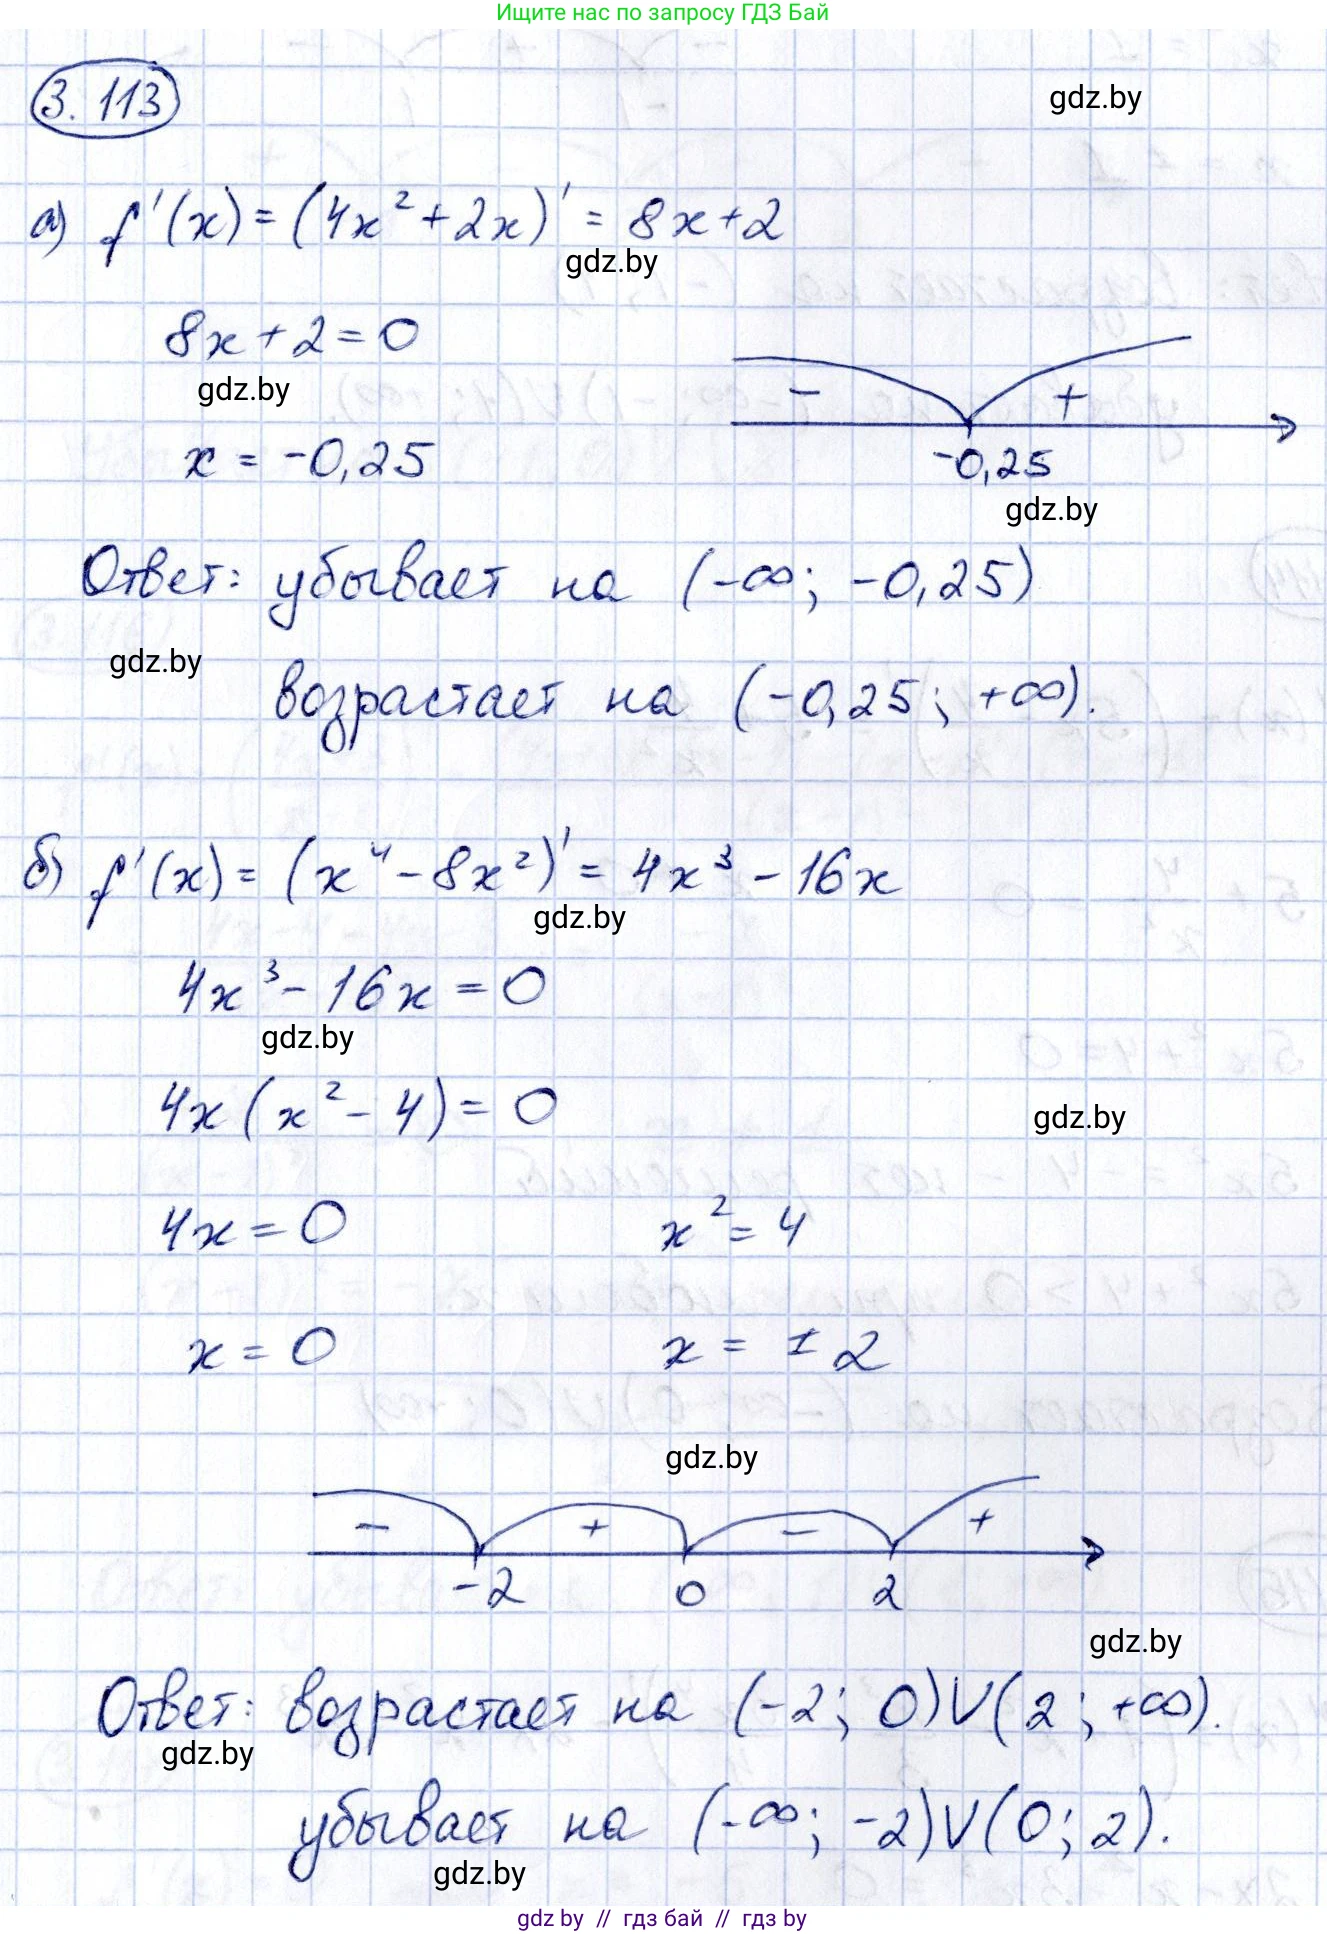 Ищите нас по запросу ГДЗ Бай
3.113
gdz.by
а) f'(x) = (4x² + 2x)' = 8x + 2
gdz.by
8x + 2 = 0
gdz.by
- +
x = -0,25
-0,25
gdz.by
Ответ: убывает на (-∞; -0,25)
gdz.by
возрастает на (-0,25; +∞).
б) f'(x) = (x⁴ - 8x²)' = 4x³ - 16x
gdz.by
4x³ - 16x = 0
gdz.by
4x(x² - 4) = 0
gdz.by
4x = 0 x² = 4
x = 0 x = ±2
gdz.by
- + - +
-2 0 2
gdz.by
Ответ: возрастает на (-2; 0)V(2; +∞).
gdz.by
убывает на (-∞; -2)V(0; 2).
gdz.by
gdz by // гдз бай // гдз by